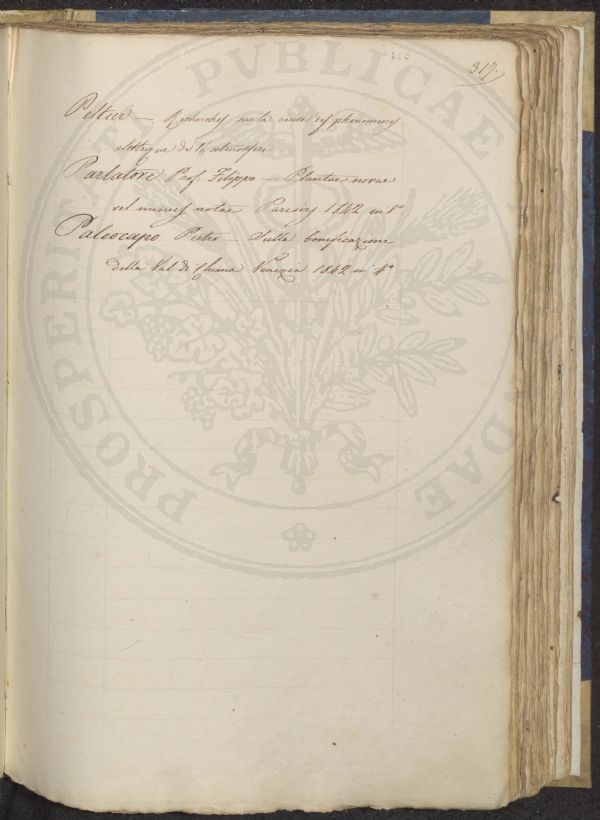 317.
Peltier — Recherches sur la cause des phenomenes
elettrique de l'atmosfere
Parlatore Prof. Filippo — Plantae novae
vel minus notae Parisiis 1842 in 8°
Paleocapo Pietro — Sulla bonificazione
della Val di Chiana Venezia 1842 in 4°
PROSPERITATI PVBLICAE